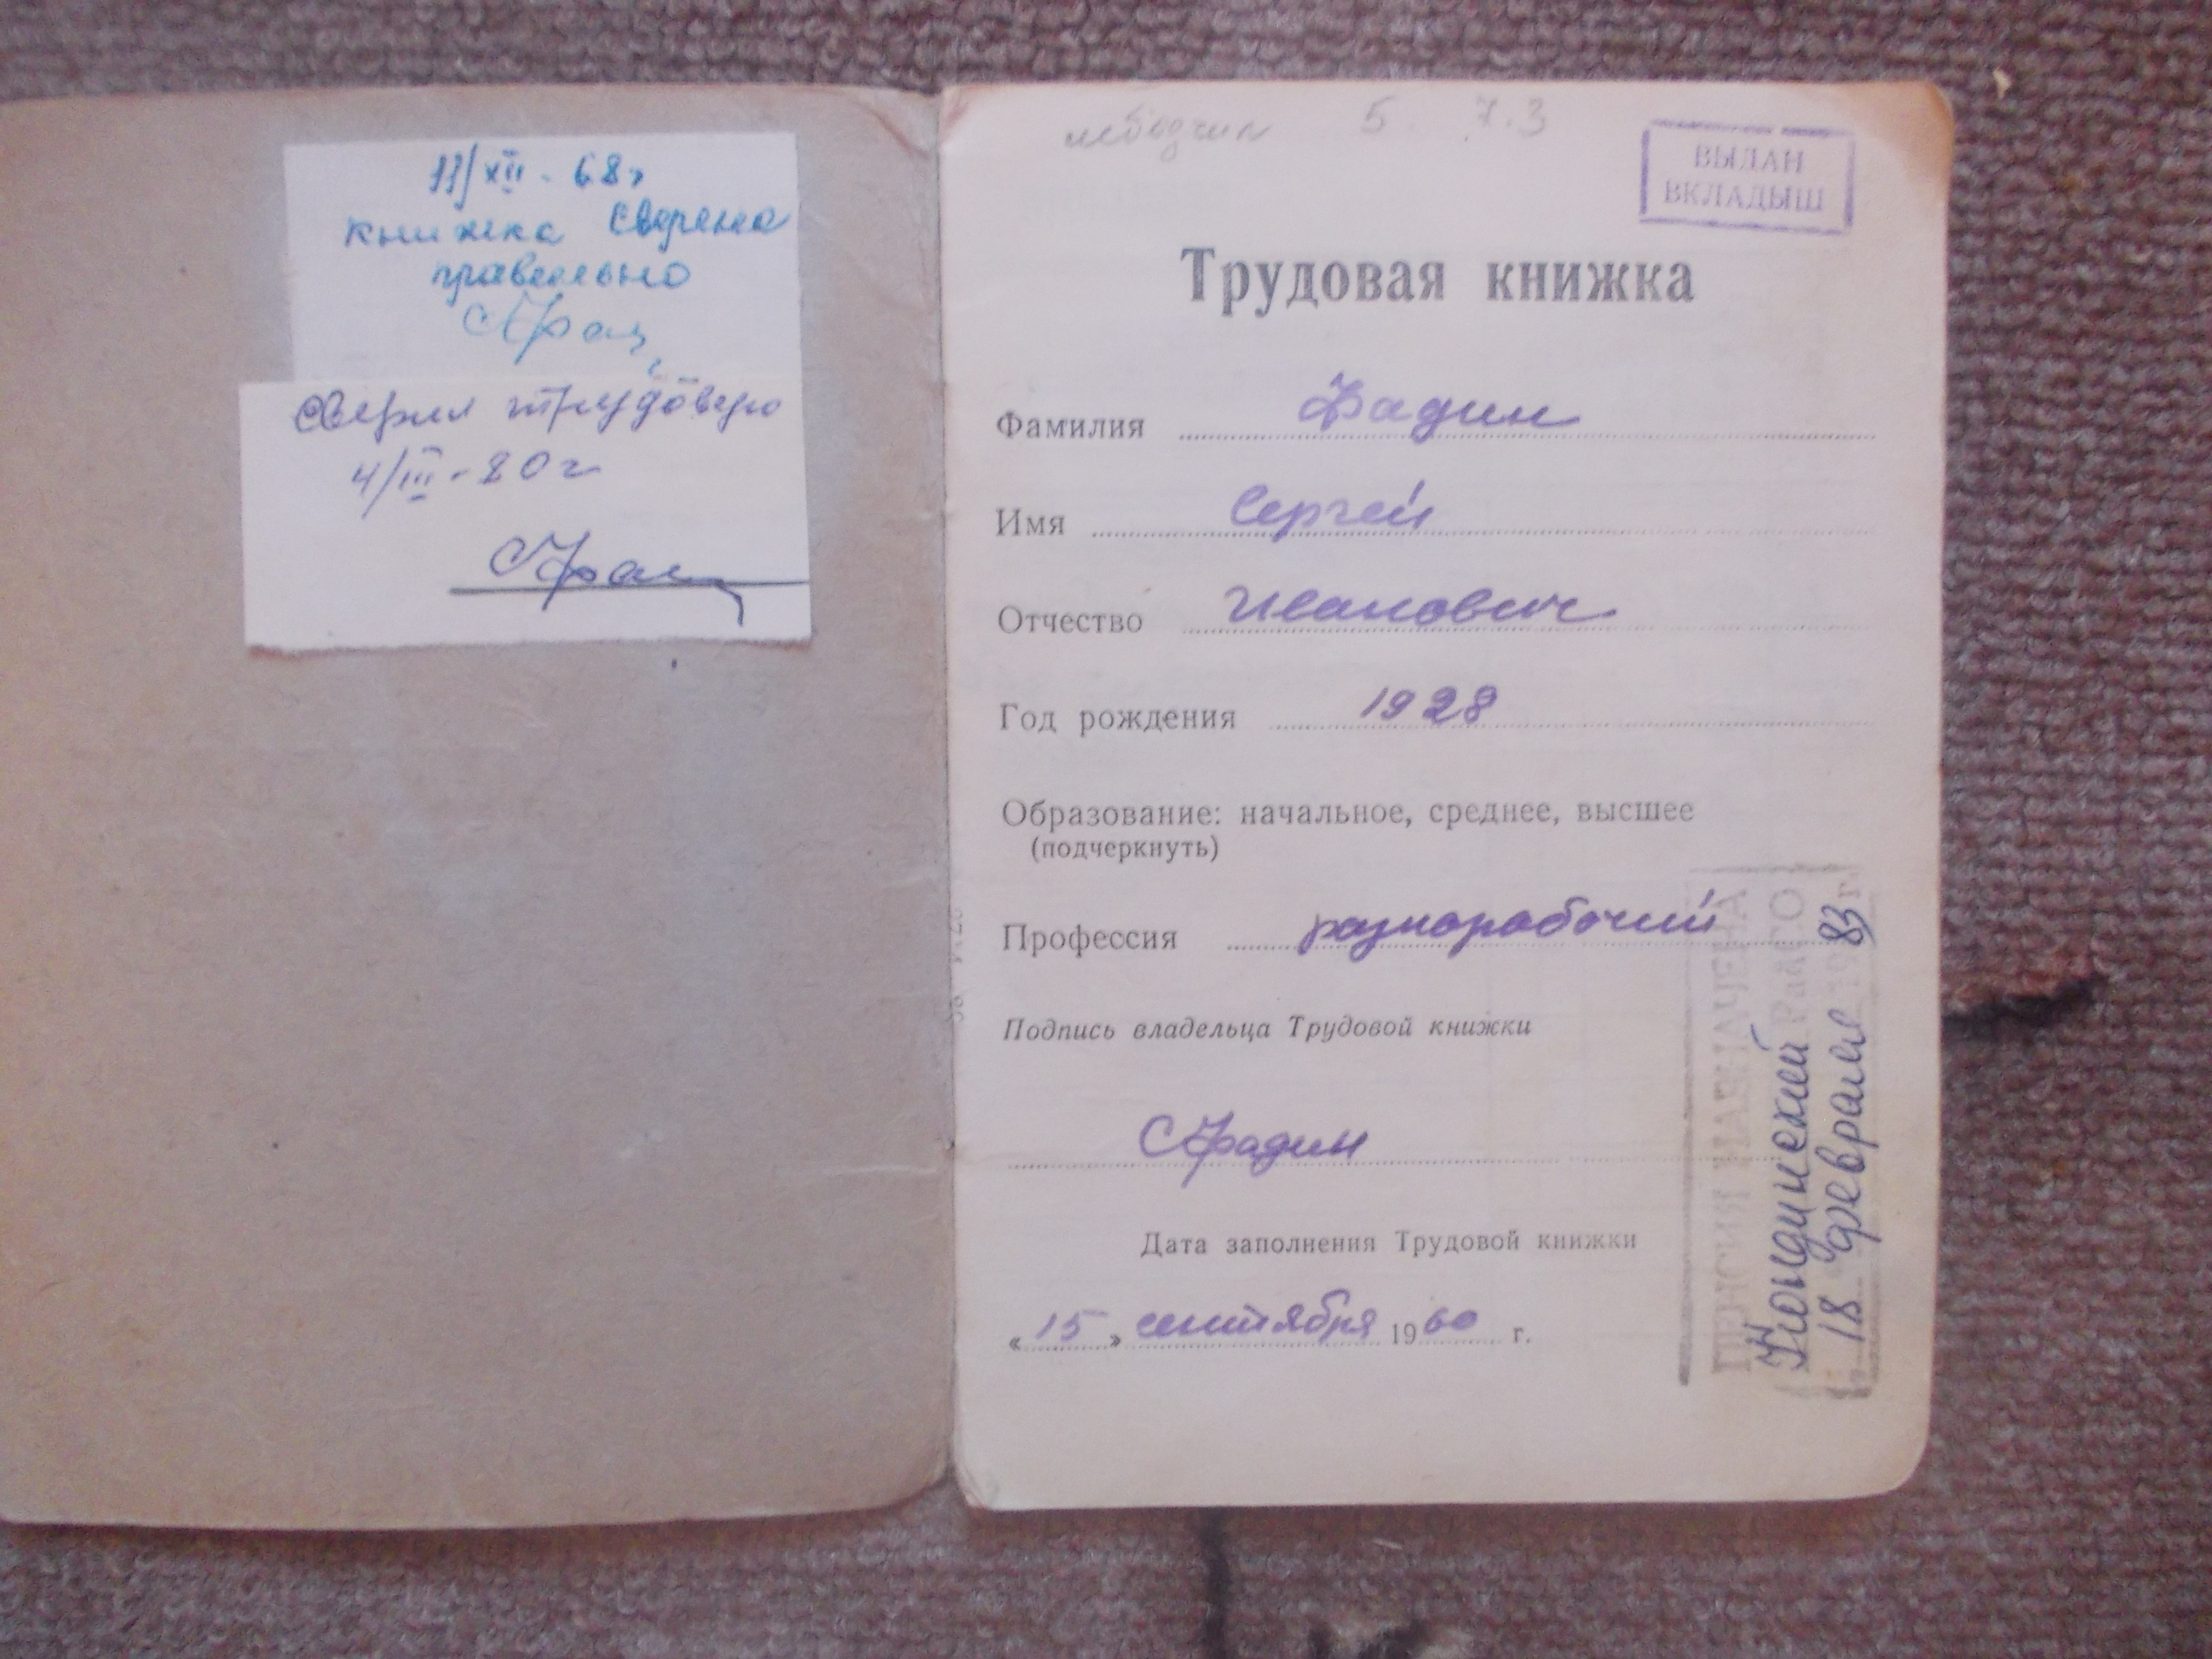 11/XII - 68г
книжка сверена
правельно
СФращ
Сверил трудовую
4/III - 80г
5 7.3
ВЫДАН
ВКЛАДЫШ
Трудовая книжка
Фамилия Фадин
Имя Сергей
Отчество Иванович
Год рождения 1928
Образование: начальное, среднее, высшее
(подчеркнуть)
Профессия разнорабочий
Подпись владельца Трудовой книжки
СФадин
Дата заполнения Трудовой книжки
«15» сентября 1960 г.
ПЕНСИЯ НАЗНАЧЕНА
Кондинский РайСО
18 февраля 1983 г.